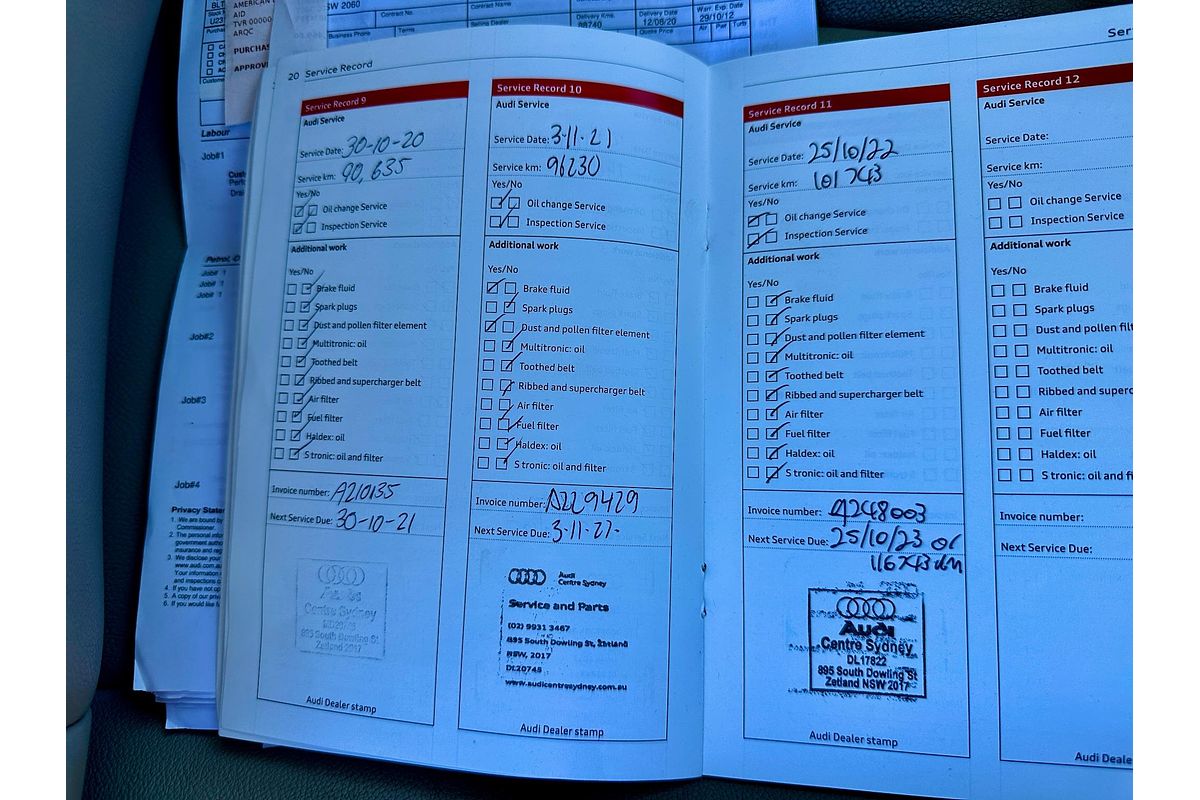 BLT
U23
AMERICAN
AID
TVR 00000
ARQC
PURCHAS
APPROV
SW 2060
Contract No.
Business Phone
Terms
Selling Dealer
Delivery Kms.
88740
Delivery Date
12/08/20
Warr. Exp. Date
29/10/12
Labour
Job#1
Job#2
Job#3
Job#4
Privacy State
1. We are bound by
Commissioner.
www.audi.com.au
Your information
and inspections
4. If you have not op
5. A copy of our priv
6. If you would like
20 Service Record
Service Record 9
Audi Service
Service Date: 30-10-20
Service km: 90,635
Yes/No
Oil change Service
Inspection Service
Additional work
Yes/No
Brake fluid
Spark plugs
Dust and pollen filter element
Multitronic: oil
Toothed belt
Ribbed and supercharger belt
Air filter
Fuel filter
Haldex: oil
S tronic: oil and filter
Invoice number: A210135
Next Service Due: 30-10-21
Audi
Centre Sydney
895 South Dowling St
Zetland 2017
Audi Dealer stamp
Service Record 10
Audi Service
Service Date: 3-11-21
Service km: 96230
Yes/No
Oil change Service
Inspection Service
Additional work
Yes/No
Brake fluid
Spark plugs
Dust and pollen filter element
Multitronic: oil
Toothed belt
Ribbed and supercharger belt
Air filter
Fuel filter
Haldex: oil
S tronic: oil and filter
Invoice number: A229429
Next Service Due: 3-11-22
Audi
Centre Sydney
Service and Parts
(02) 9931 3467
895 South Dowling St, Zetland
NSW, 2017
DL20745
www.audicentresydney.com.au
Audi Dealer stamp
Service Record 11
Audi Service
Service Date: 25/10/22
Service km: 101743
Yes/No
Oil change Service
Inspection Service
Additional work
Yes/No
Brake fluid
Spark plugs
Dust and pollen filter element
Multitronic: oil
Toothed belt
Ribbed and supercharger belt
Air filter
Fuel filter
Haldex: oil
S tronic: oil and filter
Invoice number: A248003
Next Service Due: 25/10/23 or
116743km
Audi
Centre Sydney
DL17822
895 South Dowling St
Zetland NSW 2017
Audi Dealer stamp
Ser
Service Record 12
Audi Service
Service Date:
Service km:
Yes/No
Oil change Service
Inspection Service
Additional work
Yes/No
Brake fluid
Spark plugs
Dust and pollen filt
Multitronic: oil
Toothed belt
Ribbed and superc
Air filter
Fuel filter
Haldex: oil
S tronic: oil and f
Invoice number:
Next Service Due:
Audi Dealer